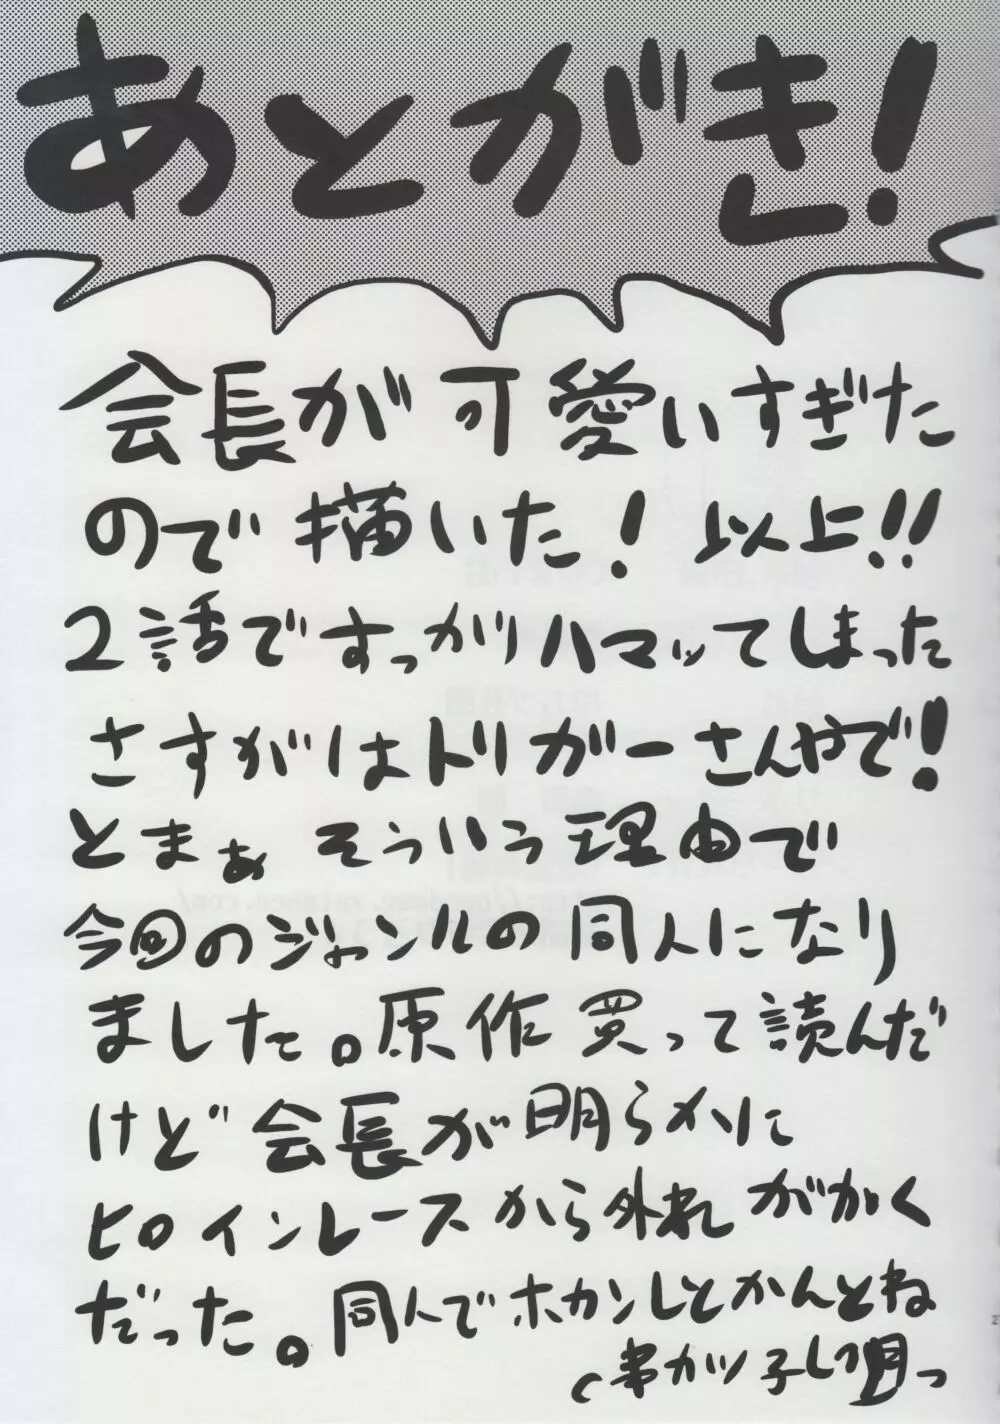 あとがき!
会長が可愛いすぎた
ので描いた! 以上!!
2話ですっかりハマッてしまった
さすがはトリガーさんやで!
とまぁ そういう理由で
今回のジャンルの同人になり
ました。原作買って読んだ
けど会長が明らかに
ヒロインレースから外れががく
だった。同人でホカンしとかんとね
串カツ子し